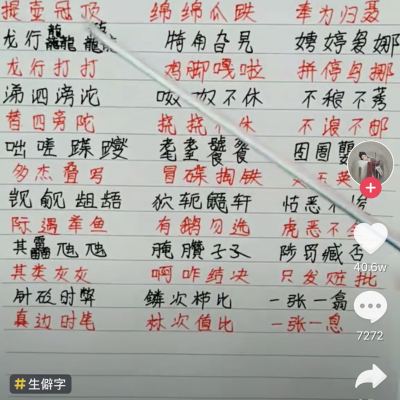 提壶冠顶 绵绵瓜跌 奉为归聂
龙行龘龘 犄角旮旯 娉婷袅娜
龙行打打 鸡脚嘎啦 拼停鸟挪
涕泗滂沱 呶呶不休 不稂不莠
替四旁陀 挠挠不休 不浪不
咄嗟蹀躞 耄耋饕餮 囹圄
多杰叠写 冒碟掏铁 英
觊觎龃龉 狄轭 轩 怙恶不
际遇举鱼 有鹅勿选 虎恶不
其 虺虺 腌臜孑孓 陟罚臧否
其类灰灰 啊咋结决 只发脏批
针砭时弊 鳞次栉比 一张一翕
真边时笔 林次值比 一张一息
40.6w
7272
#生僻字